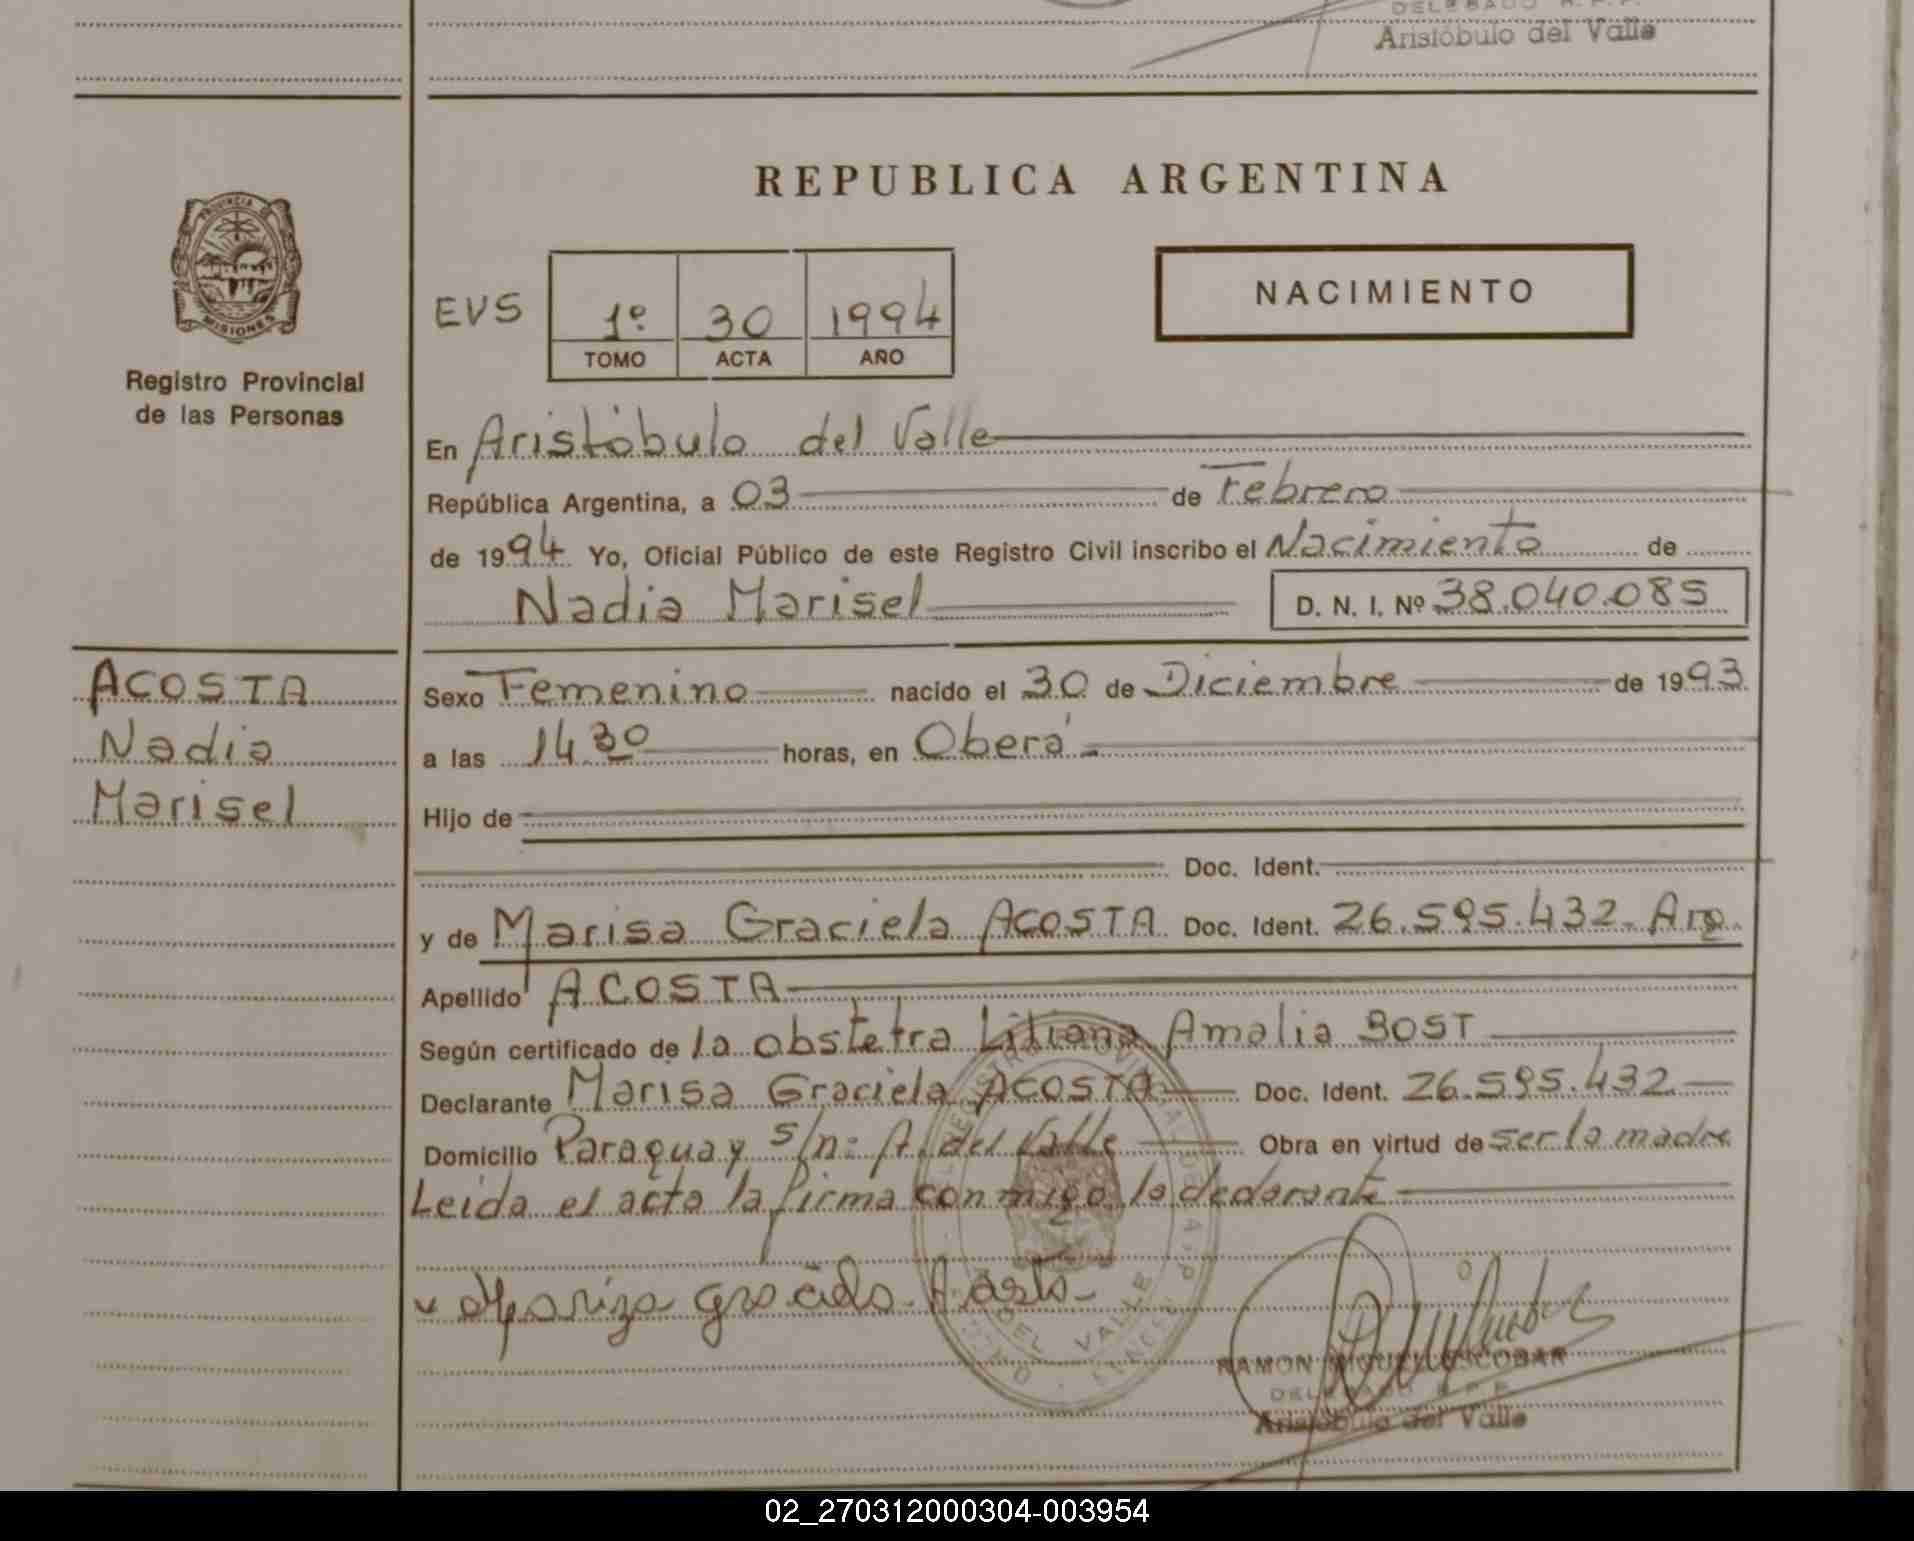 DELEGADO R.P.P.
Aristóbulo del Valle
REPUBLICA ARGENTINA
PROVINCIA DE
MISIONES
Registro Provincial
de las Personas
EVS
1º 30 1994
TOMO ACTA AÑO
NACIMIENTO
En Aristóbulo del Valle
República Argentina, a 03 de Febrero
de 1994 Yo, Oficial Público de este Registro Civil inscribo el Nacimiento de
Nadia Marisel D. N. I. Nº 38.040.085
ACOSTA
Nadia
Marisel
Sexo Femenino nacido el 30 de Diciembre de 1993
a las 14.30 horas, en Oberá
Hijo de
Doc. Ident.
y de Marisa Graciela ACOSTA Doc. Ident. 26.595.432. Arg.
Apellido ACOSTA
Según certificado de la obstetra Liliana Amalia BOST
Declarante Marisa Graciela ACOSTA Doc. Ident. 26.595.432
Domicilio Paraguay s/n: A. del Valle Obra en virtud de ser la madre
Leida el acta la firma conmigo la declarante
REGISTRO PROVINCIAL
DEL VALLE
RAMON MIGUEL ESCOBAR
DELEGADO R.P.P.
Aristóbulo del Valle
02_270312000304-003954